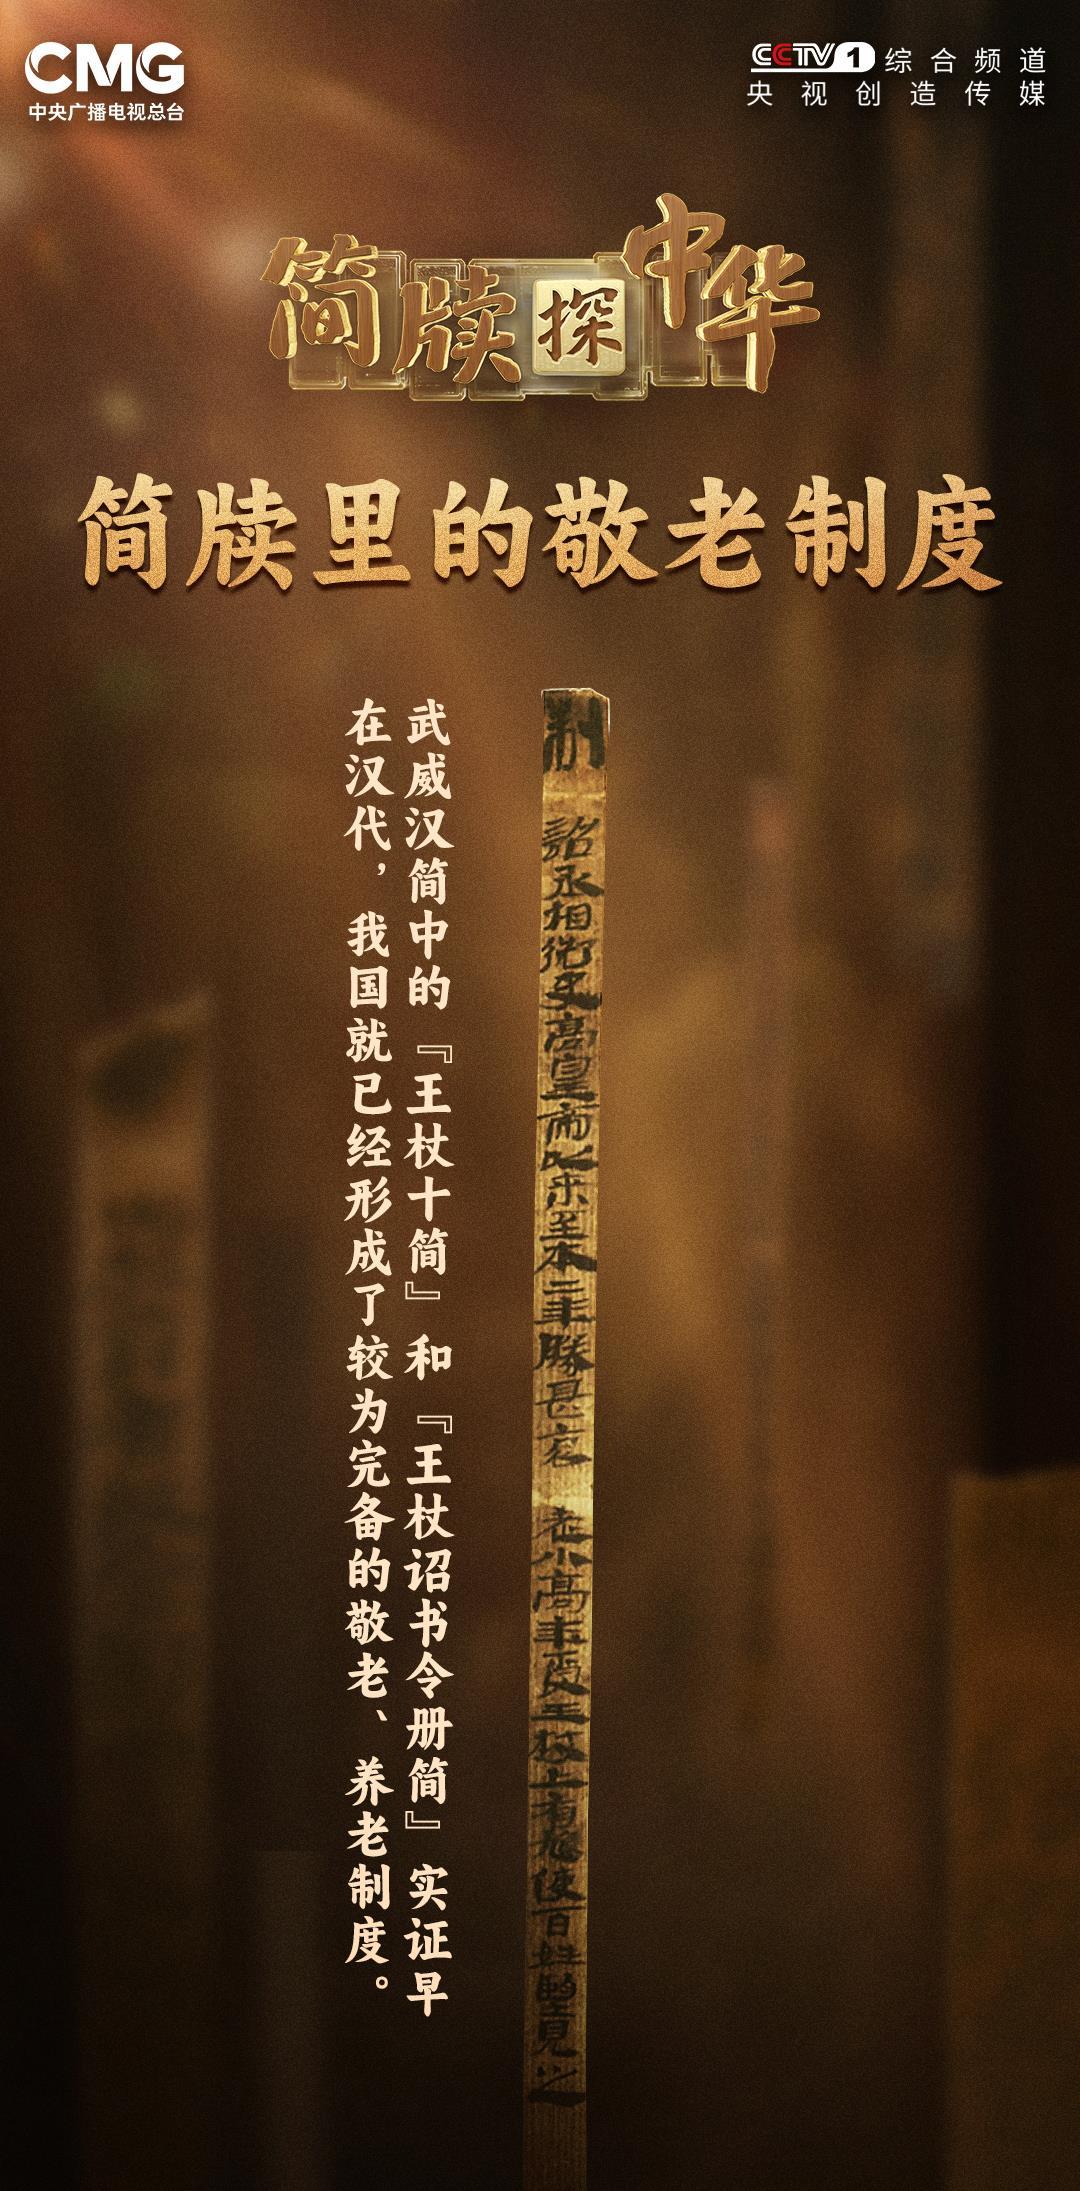 CMG
中央广播电视总台
CCTV1综合频道
央视创造传媒
简牍探中华
简牍里的敬老制度
制
詔丞相御史高皇帝以來至本二年勝甚哀
老小高年受王杖上有鳩使百姓望見之
武威汉简中的『王杖十简』和『王杖诏书令册简』实证早
在汉代，我国就已经形成了较为完备的敬老、养老制度。